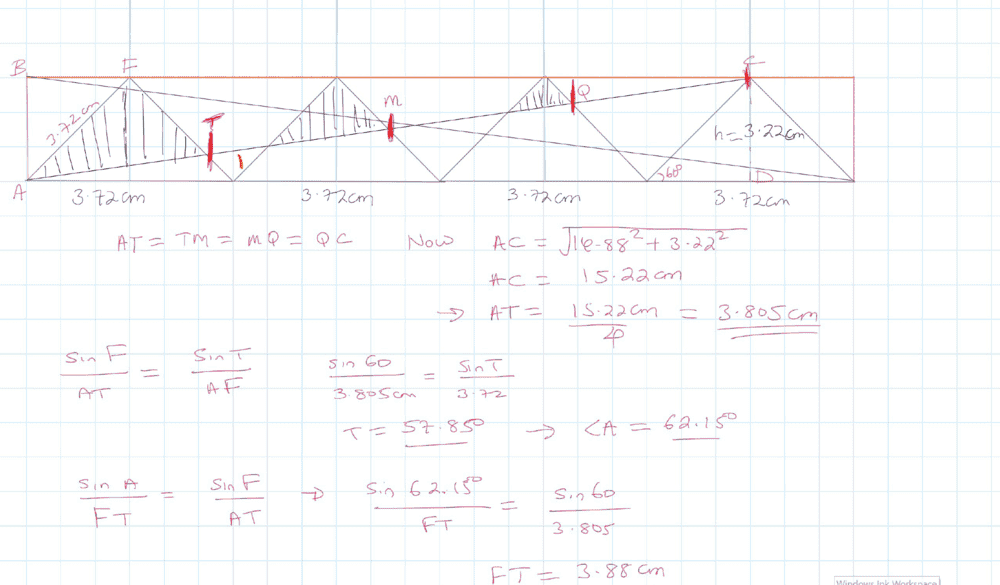 B F C
T M Q
3.72cm
h = 3.22cm
1 60°
A D
3.72cm 3.72cm 3.72cm 3.72cm
AT = TM = MQ = QC Now AC = √14.88² + 3.22²
AC = 15.22cm
→ AT = 15.22cm / 4 = 3.805cm
Sin F / AT = Sin T / AF sin 60 / 3.805cm = Sin T / 3.72
T = 57.85° → <A = 62.15°
Sin A / FT = Sin F / AT → Sin 62.15° / FT = Sin 60 / 3.805
FT = 3.88cm
Windows Ink Workspace